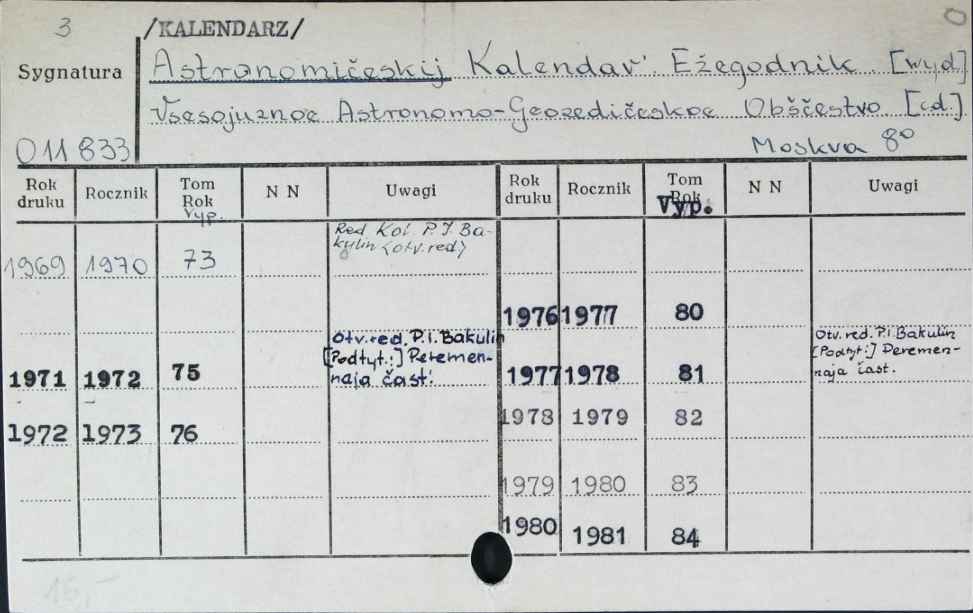 3 /KALENDARZ/
Sygnatura Astronomičeskij Kalendar'. Ežegodnik. [wyd]
Vsesojuznoe Astronomo-Geozedičeskoe Obščestvo [cd.]
011 833 Moskva 8°
Rok druku Rocznik Tom Rok Vyp. N N Uwagi Rok druku Rocznik Tom Rok Vyp. N N Uwagi
1969 1970 73 Red Kol. P. I. Ba-
kylin (otv. red)
1976 1977 80
Otv. red. P. i. Bakulin
[Podtyt.:] Peremen-
1971 1972 75 naja čast'.
Otv. red. P. i Bakulin
[Podtyt:] Peremen-
1977 1978 81 naja čast.
1978 1979 82
1972 1973 76
1979 1980 83
1980 1981 84
15,-